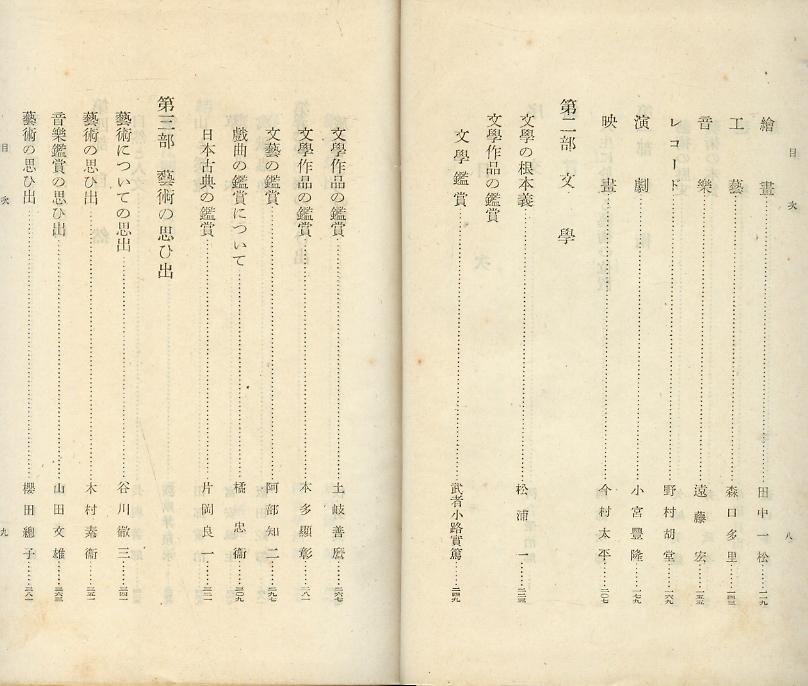 目次
繪畫……田中一松……一一九
工藝……森口多里……一四三
音樂……遠藤宏……一五五
レコード……野村胡堂……一六九
演劇……小宮豐隆……一七九
映畫……今村太平……二〇七
第二部 文學
文學の根本義……松浦一……二二三
文學作品の鑑賞
文學鑑賞……武者小路實篤……二四九
八
目次
文學作品の鑑賞……土岐善麿……二六七
文學作品の鑑賞……本多顯彰……二八一
文藝の鑑賞……阿部知二……二九七
戲曲の鑑賞について……橘忠衞……三〇九
日本古典の鑑賞……片岡良一……三二一
第三部 藝術の思ひ出
藝術についての思出……谷川徹三……三四一
藝術の思ひ出……木村素衞……三五一
音樂鑑賞の思ひ出……山田文雄……三六三
藝術の思ひ出……櫻田總子……三八一
九